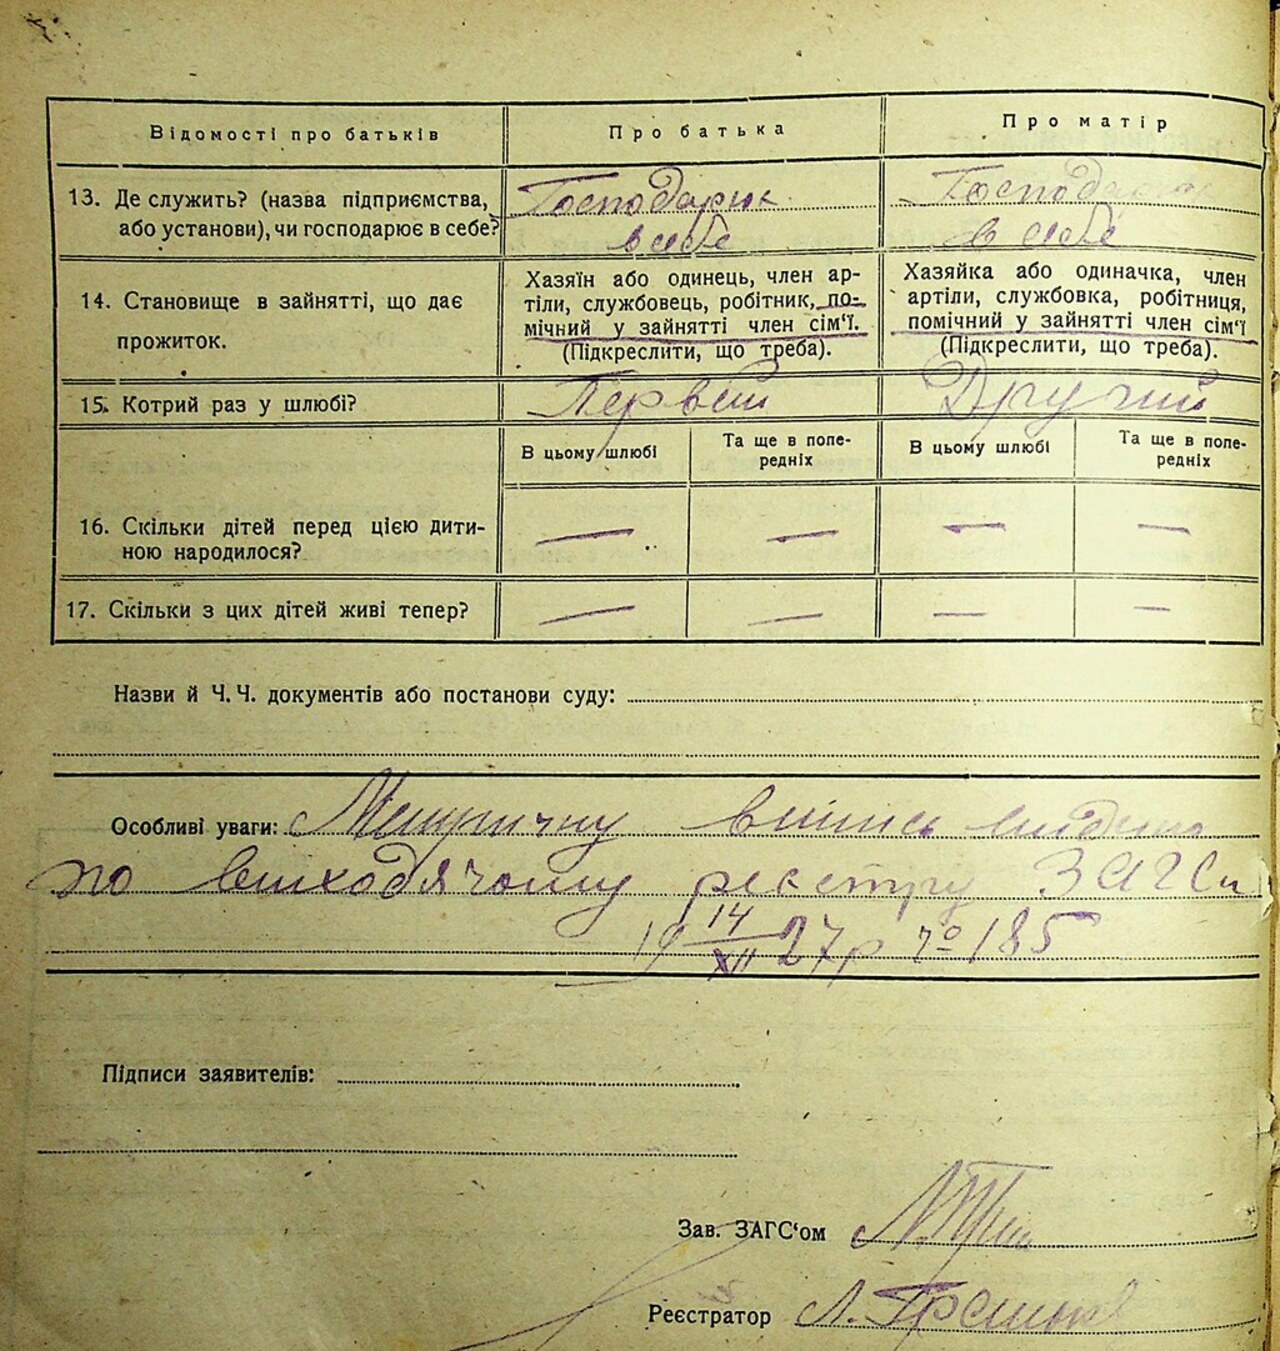 Відомості про батьків
Про батька
Про матір
13. Де служить? (назва підприємства,
або установи), чи господарює в себе?
Господарює
в себе
Господарює
в себе
14. Становище в зайнятті, що дає
прожиток.
Хазяїн або одинець, член ар-
тілі, службовець, робітник, по-
мічний у зайнятті член сім'ї.
(Підкреслити, що треба).
Хазяйка або одиначка, член
артіли, службовка, робітниця,
помічний у зайнятті член сім'ї
(Підкреслити, що треба).
15. Котрий раз у шлюбі?
Первий
Другий
В цьому шлюбі
Та ще в попе-
редніх
В цьому шлюбі
Та ще в попе-
редніх
16. Скільки дітей перед цією дити-
ною народилося?
— — — —
17. Скільки з цих дітей живі тепер?
— — — —
Назви й Ч. Ч. документів або постанови суду:
Особливі уваги: Метричну випись видано
по виходячому реєстру ЗАГСу
19 14/XII 27 р № 185
Підписи заявителів:
Зав. ЗАГС'ом
Реєстратор Л.